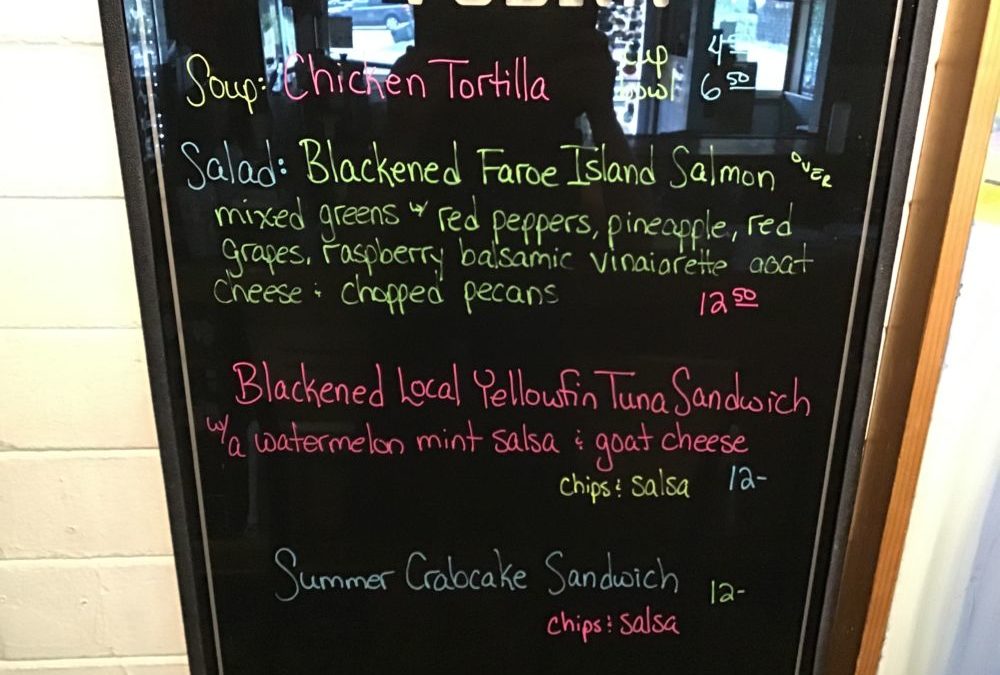 Soup: Chicken Tortilla cup
bowl 6 50
Salad: Blackened Faroe Island Salmon OVER
mixed greens w/ red peppers, pineapple, red
grapes, raspberry balsamic vinaiorette goat
cheese & chopped pecans 12 50
Blackened Local Yellowfin Tuna Sandwich
w/a watermelon mint salsa & goat cheese
chips & salsa 12-
Summer Crabcake Sandwich 12-
chips & salsa